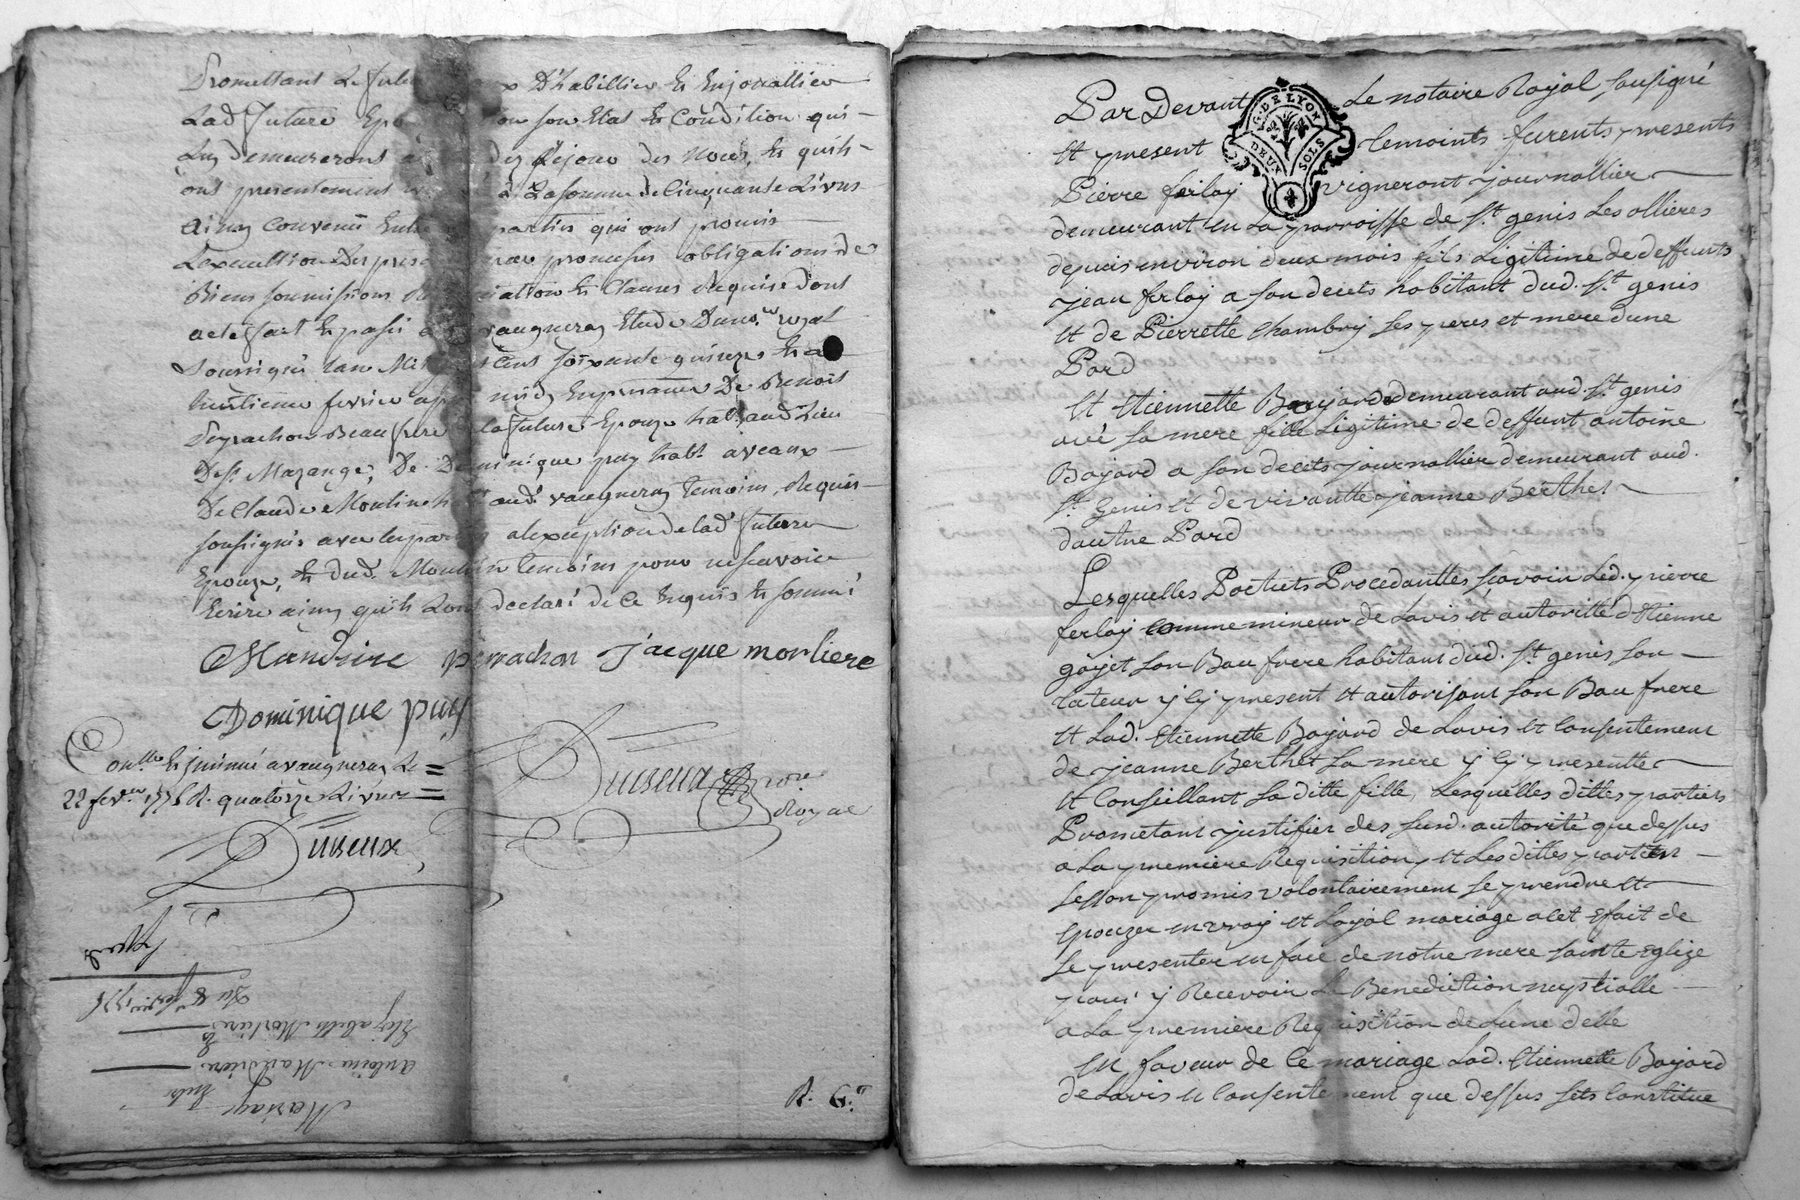 Promettant Le futur Epoux D'habillier Et Enjouallier
Lad. future Epouze selon son Etat Et Condition qui
Luy demeureront des Lejour des Noces, Et quils
ont presentement à La somme de Cinquante Livres
ainsy Convenu Entre parties qui ont promis
L'execution Des presentes par promesses obligations de
Biens soumissions Renonciation Et Clauses Requises Dont
acte fait Et passé a vaugneray Etude Du no.re royal
soussigné Lan Mil sept Cent soixante quinze Et le
huitieme fevrier apres midy En presence De Benoit
Peyrachon Beaufrere de la future Epouze habt. aud. Lieu
De St. Mazange, De Dominique puy habt. aveaux
De Claude Moulin aud. vaugneray temoins, Requis
soussignés avec les parties alexception de lad. future
Epouze, Et dud. Moulin temoins pour ne scavoir
Ecrire ainsy quils Lont declaré de ce Enquis Et sommé
Mandrire peirachon Jacque morliere
Dominique puy
Dutreux no.re Royal
Con.llé Et insinué a vaugneray Le
22 fev.er 1775 R. quatorze Livres
Dutreux
Mariage
Entre
Antoine Mandrire
Et
Elizabeth Morliere
Du 8 fevrier 1775
R. G.
G. DE LYON
DEUX SOLS
Par Devant Le notaire Royal sousigné
Et present temoints furents presents
Pierre ferlay vigneront journallier
demeurant en La parroisse de St. genis Les ollieres
depuis environ deux mois fils Ligitime de deffunts
jean ferlay a son decets habitant dud. St. genis
Et de Pierrette Chambry ses peres et mere dune
Pard
Et Etiennette Boyjard demeurant aud. St. genis
avé sa mere fille Ligitime de deffunt antoine
Bojard a son decets journallier demeurant aud.
St. Genis Et de vivantte jeanne Berthet
dautre Pard
Lesquelles Partiets Procedanttes sçavoir Led. pierre
ferlay comme mineur de Lavis Et autoritté d'Etienne
gojet son Bau frere habitant dud. St. genis son
tateur y cy present Et autorisant son Bau frere
Et Lad. Etiennette Bojard de Lavis Et Consentement
de jeanne Berthet sa mere y cy presentte
Et Conseillant sa ditte fille, Lesquelles dittes partiets
Prometant justifier des susd. autorité que dessus
a La premiere Requisition, Et Les dittes partiets
se sont promis volontairement se prendre Et
Epouzer en vray Et Loyal mariage a cet Efait de
se presenter en face de notre mere sainte Eglize
pour y Recevoir La Benediction nuptialle
a La premiere Requisition de Lune delle
En faveur de Ce mariage Lad. Etiennette Bojard
de Lavis et Consentement que dessus sets Constitue